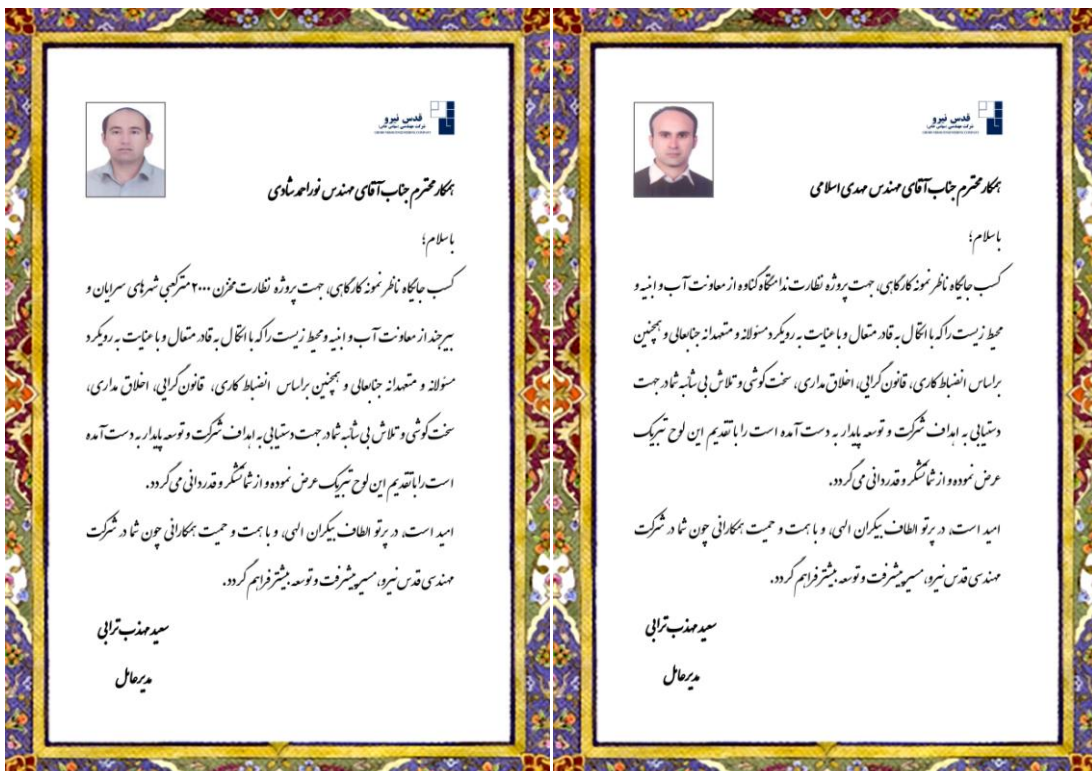 قدس نیرو
شرکت مهندسی (سهامی خاص)
GHODS NIROO ENGINEERING COMPANY
همکار محترم جناب آقای مهندس مهدی اسلامی
باسلام؛
کسب جایگاه ناظر نمونه کارگاهی، جهت پروژه نظارت ندامتگاه گناوه از معاونت آب و ابنیه و
محیط زیست را که با اتکال به قادر متعال و با عنایت به رویکرد مسئولانه و متعهدانه جنابعالی و همچنین
براساس انضباط کاری، قانون گرایی، اخلاق مداری، سخت کوشی و تلاش بی شائبه شما در جهت
دستیابی به اهداف شرکت و توسعه پایدار به دست آمده است را با تقدیم این لوح تبریک
عرض نموده و از شما تشکر و قدردانی می گردد.
امید است، در پرتو الطاف بیکران الهی، و با همت و حمیت همکارانی چون شما در شرکت
مهندسی قدس نیرو، مسیر پیشرفت و توسعه بیشتر فراهم گردد.
سعید مهذب ترابی
مدیرعامل
قدس نیرو
شرکت مهندسی (سهامی خاص)
GHODS NIROO ENGINEERING COMPANY
همکار محترم جناب آقای مهندس نوراحمد شادی
باسلام؛
کسب جایگاه ناظر نمونه کارگاهی، جهت پروژه نظارت مخزن ۲۰۰۰ مترکعبی شهرهای سرایان و
بیرجند از معاونت آب و ابنیه و محیط زیست را که با اتکال به قادر متعال و با عنایت به رویکرد
مسئولانه و متعهدانه جنابعالی و همچنین براساس انضباط کاری، قانون گرایی، اخلاق مداری،
سخت کوشی و تلاش بی شائبه شما در جهت دستیابی به اهداف شرکت و توسعه پایدار به دست آمده
است را با تقدیم این لوح تبریک عرض نموده و از شما تشکر و قدردانی می گردد.
امید است، در پرتو الطاف بیکران الهی، و با همت و حمیت همکارانی چون شما در شرکت
مهندسی قدس نیرو، مسیر پیشرفت و توسعه بیشتر فراهم گردد.
سعید مهذب ترابی
مدیرعامل